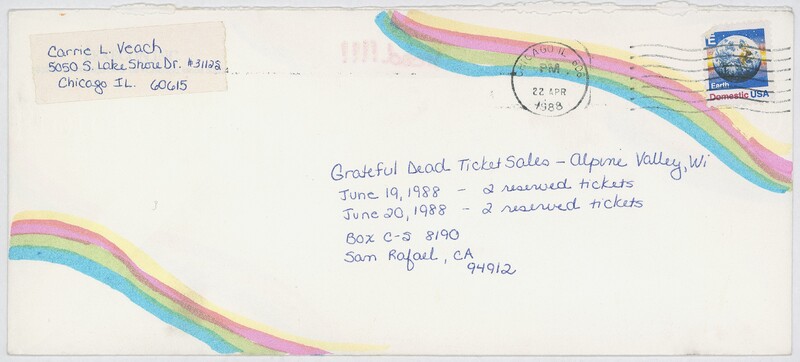 Carrie L. Veach
5050 S. Lake Shore Dr. #3112S
Chicago IL. 60615
CHICAGO IL 606
PM
22 APR
1988
E
Earth
Domestic USA
Grateful Dead Ticket Sales – Alpine Valley, Wi
June 19, 1988 – 2 reserved tickets
June 20, 1988 – 2 reserved tickets
Box C-S 8190
San Rafael, CA
94912